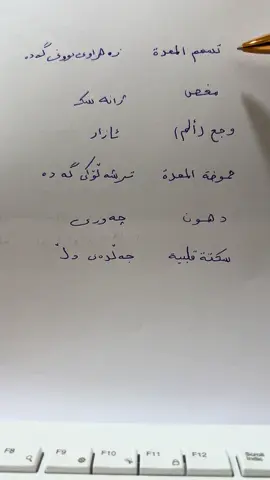 تسمم المعدة ژەهراوی بوونی گەدە
مغص ژانە سک
وجع (ألم) ئازار
حموضة المعدة ترشەڵۆکی گەدە
دهون چەوری
سكتة قلبية جەڵدەی دڵ
F8 F9 F10 F11 F12 Scroll